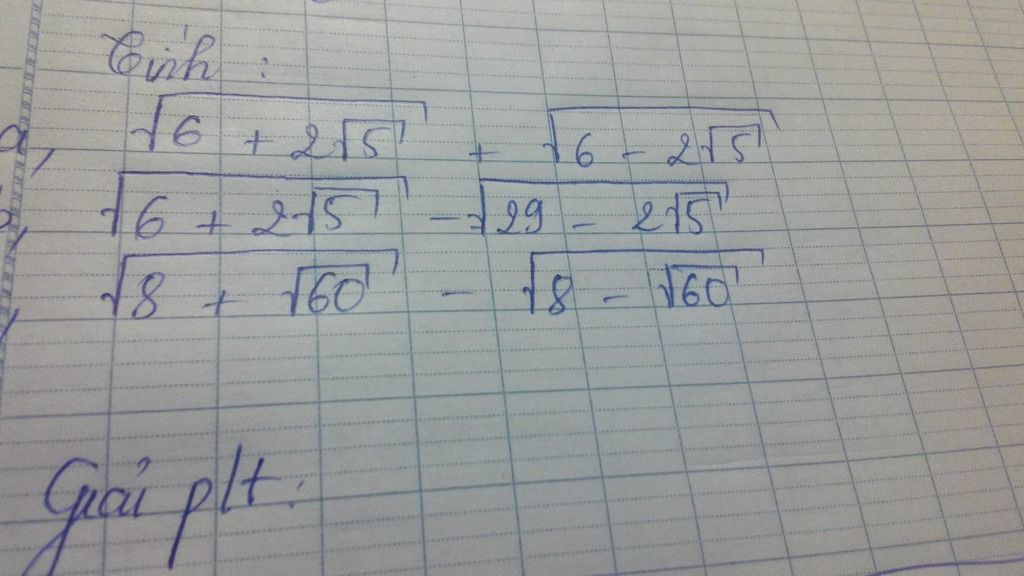 Tính :
a, √(6 + 2√5) + √(6 - 2√5)
√(6 + 2√5) - √(29 - 2√5)
√(8 + √60) - √(8 - √60)
Giải p/t :